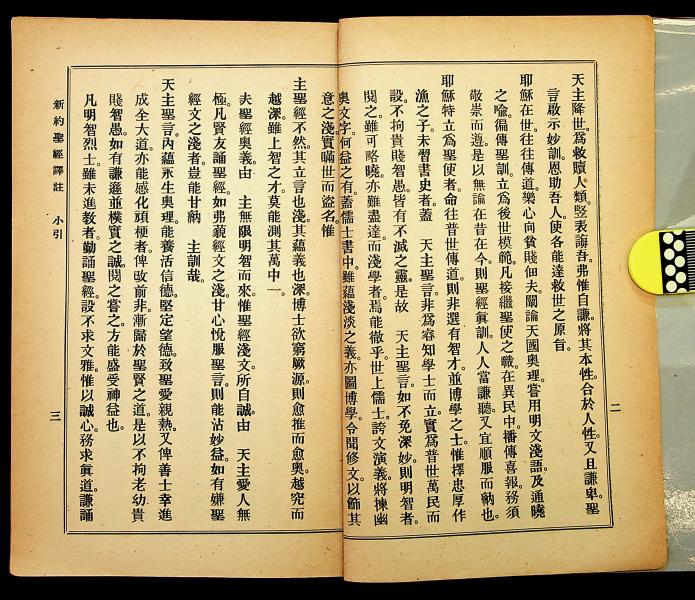 天主降世。爲救贖人類。竪表誨吾。弗惟自謙。將其本性合於人性。又且謙卑。聖
言啟示妙訓。恩助吾人。使各能達救世之原旨。
耶穌在世。往往傳道。樂心向貧賤佃夫。闡論天國奧理。嘗用明文淺語。及通曉
之喻。徧傳聖訓。立爲後世模範。凡接繼聖使之職。在異民中播傳喜報。務須
敬崇而遵。是以無論在昔在今。則聖經眞訓。人人當謙聽。又宜順服而納也。
耶穌特立爲聖使者。命往普世傳道。則非選有智才並博學之士。惟擇忠厚作
漁之子。未習書史者。蓋 天主聖言。非爲睿知學士而立。實爲普世萬民而
設。不拘貴賤智愚。皆有不滅之靈。是故 天主聖言。如不免深妙。則明智者。
閱之雖可略曉。亦難盡達。而淺學者。焉能徹乎。世上儒士。誇文演義。將揀幽
奧文字。何益之有。蓋儒士書中。雖蘊淺淡之義。亦圖博學。令聞修文。以飾其
意之淺。實瞞世而盜名。惟
主聖經不然。其立言也淺。其蘊義也深。博士欲窮厥源。則愈推而愈奧。越究而
越深。雖上智之才。莫能測其萬中一。
夫聖經奧義。由 主無限明智而來。惟聖經淺文。所自誠由 天主愛人無
極。凡賢友誦聖經。如弗藐經文之淺。甘心悅服聖言。則能沾妙益。如有嫌聖
經文之淺者。豈能甘納 主訓哉。
天主聖言。內蘊永生奧理。能養活信德。堅定望德。致聖愛親熱。又俾善士幸進
成全大道。亦能感化頑梗者。俾改前非。漸歸於聖賢之道。是以不拘老幼貴
賤智愚。如有謙遜並樸實之誠。閱之嘗之。方能盛受神益也。
凡明智烈士。雖未進教者。勤誦聖經。設不求文雅。惟以誠心務求眞道。謙誦
新約聖經譯註 小引
二
三